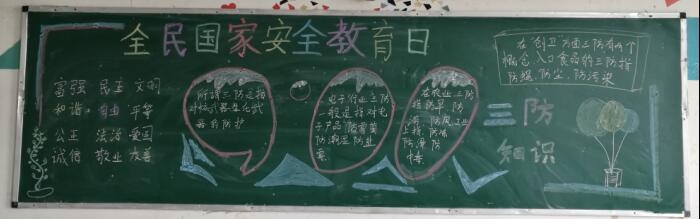 全民国家安全教育日
富强 民主 文明
和谐 自由 平等
公正 法治 爱国
诚信 敬业 友善
所谓三防是指
对核武器生化武
器的防护
电子行业三防
一般是指对电
子产品防霉菌
防潮湿防盐
雾
在农业三防
指防旱、防
涝、防风工业
上指、防
防
三防
知识
在“创卫”方面三防有两个
概念,入口食品的三防指
防蝇、防尘、防污染